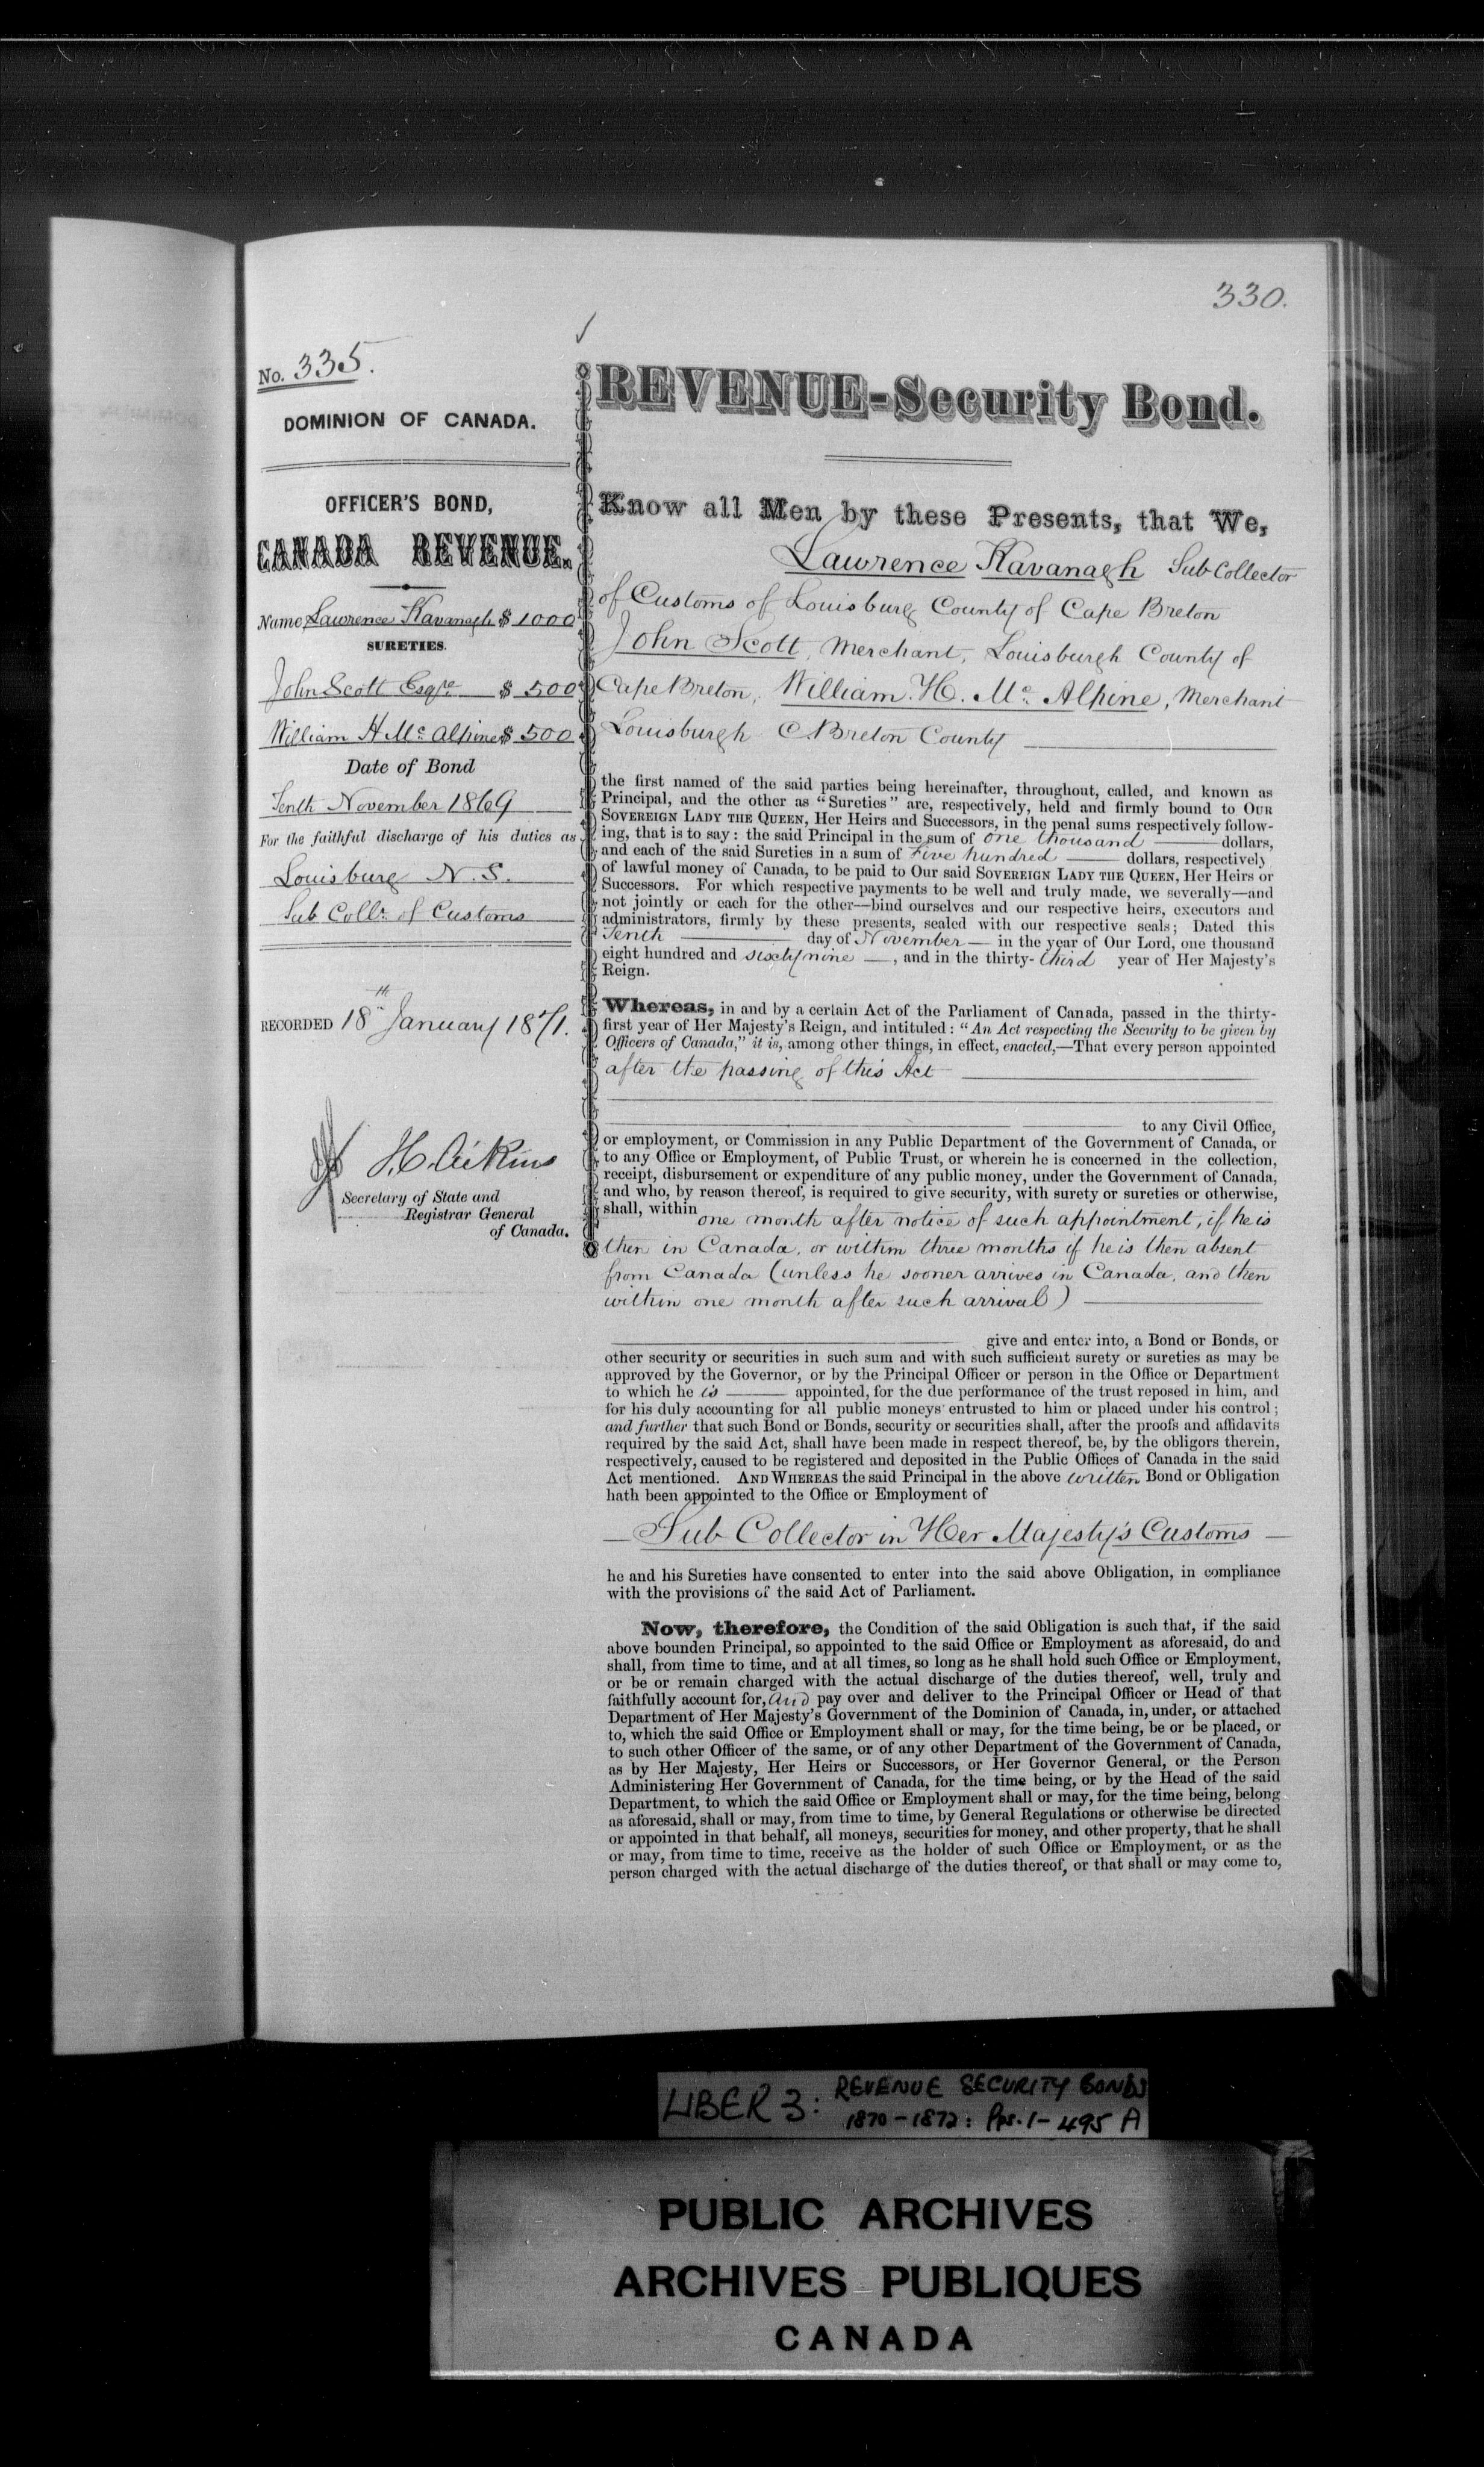 330.
No. 335.
DOMINION OF CANADA.
OFFICER'S BOND,
CANADA REVENUE.
Name Lawrence Kavanagh $ 1000
SURETIES.
John Scott Esqre $ 500
William H Mc Alpine $ 500
Date of Bond
Tenth November 1869
For the faithful discharge of his duties as
Louisburg N. S.
Sub Collr. of Customs
RECORDED 18th January 1871.
J. C. Aikins
Secretary of State and
Registrar General
of Canada.
REVENUE-Security Bond.
Know all Men by these Presents, that We,
Lawrence Kavanagh Sub Collector
of Customs of Louisburg County of Cape Breton
John Scott, Merchant, Louisburgh County of
Cape Breton, William. H. Mc. Alpine, Merchant
Louisburgh C. Breton County
the first named of the said parties being hereinafter, throughout, called, and known as
Principal, and the other as "Sureties" are, respectively, held and firmly bound to OUR
SOVEREIGN LADY THE QUEEN, Her Heirs and Successors, in the penal sums respectively follow-
ing, that is to say: the said Principal in the sum of one thousand dollars,
and each of the said Sureties in a sum of Five hundred dollars, respectively
of lawful money of Canada, to be paid to Our said SOVEREIGN LADY THE QUEEN, Her Heirs or
Successors. For which respective payments to be well and truly made, we severally—and
not jointly or each for the other—bind ourselves and our respective heirs, executors and
administrators, firmly by these presents, sealed with our respective seals; Dated this
Tenth day of November in the year of Our Lord, one thousand
eight hundred and sixty nine, and in the thirty-third year of Her Majesty's
Reign.
Whereas, in and by a certain Act of the Parliament of Canada, passed in the thirty-
first year of Her Majesty's Reign, and intituled: "An Act respecting the Security to be given by
Officers of Canada," it is, among other things, in effect, enacted,—That every person appointed
after the passing of this Act
to any Civil Office,
or employment, or Commission in any Public Department of the Government of Canada, or
to any Office or Employment, of Public Trust, or wherein he is concerned in the collection,
receipt, disbursement or expenditure of any public money, under the Government of Canada,
and who, by reason thereof, is required to give security, with surety or sureties or otherwise,
shall, within one month after notice of such appointment, if he is
then in Canada, or within three months if he is then absent
from Canada (unless he sooner arrives in Canada, and then
within one month after such arrival)
give and enter into, a Bond or Bonds, or
other security or securities in such sum and with such sufficient surety or sureties as may be
approved by the Governor, or by the Principal Officer or person in the Office or Department
to which he is appointed, for the due performance of the trust reposed in him, and
for his duly accounting for all public moneys entrusted to him or placed under his control;
and further that such Bond or Bonds, security or securities shall, after the proofs and affidavits
required by the said Act, shall have been made in respect thereof, be, by the obligors therein,
respectively, caused to be registered and deposited in the Public Offices of Canada in the said
Act mentioned. AND WHEREAS the said Principal in the above written Bond or Obligation
hath been appointed to the Office or Employment of
Sub Collector in Her Majesty's Customs
he and his Sureties have consented to enter into the said above Obligation, in compliance
with the provisions of the said Act of Parliament.
Now, therefore, the Condition of the said Obligation is such that, if the said
above bounden Principal, so appointed to the said Office or Employment as aforesaid, do and
shall, from time to time, and at all times, so long as he shall hold such Office or Employment,
or be or remain charged with the actual discharge of the duties thereof, well, truly and
faithfully account for, and pay over and deliver to the Principal Officer or Head of that
Department of Her Majesty's Government of the Dominion of Canada, in, under, or attached
to, which the said Office or Employment shall or may, for the time being, be or be placed, or
to such other Officer of the same, or of any other Department of the Government of Canada,
as by Her Majesty, Her Heirs or Successors, or Her Governor General, or the Person
Administering Her Government of Canada, for the time being, or by the Head of the said
Department, to which the said Office or Employment shall or may, for the time being, belong
as aforesaid, shall or may, from time to time, by General Regulations or otherwise be directed
or appointed in that behalf, all moneys, securities for money, and other property, that he shall
or may, from time to time, receive as the holder of such Office or Employment, or as the
person charged with the actual discharge of the duties thereof, or that shall or may come to,
LIBER 3: REVENUE SECURITY BONDS
1870-1872: Pps. 1-495 A
PUBLIC ARCHIVES
ARCHIVES PUBLIQUES
CANADA